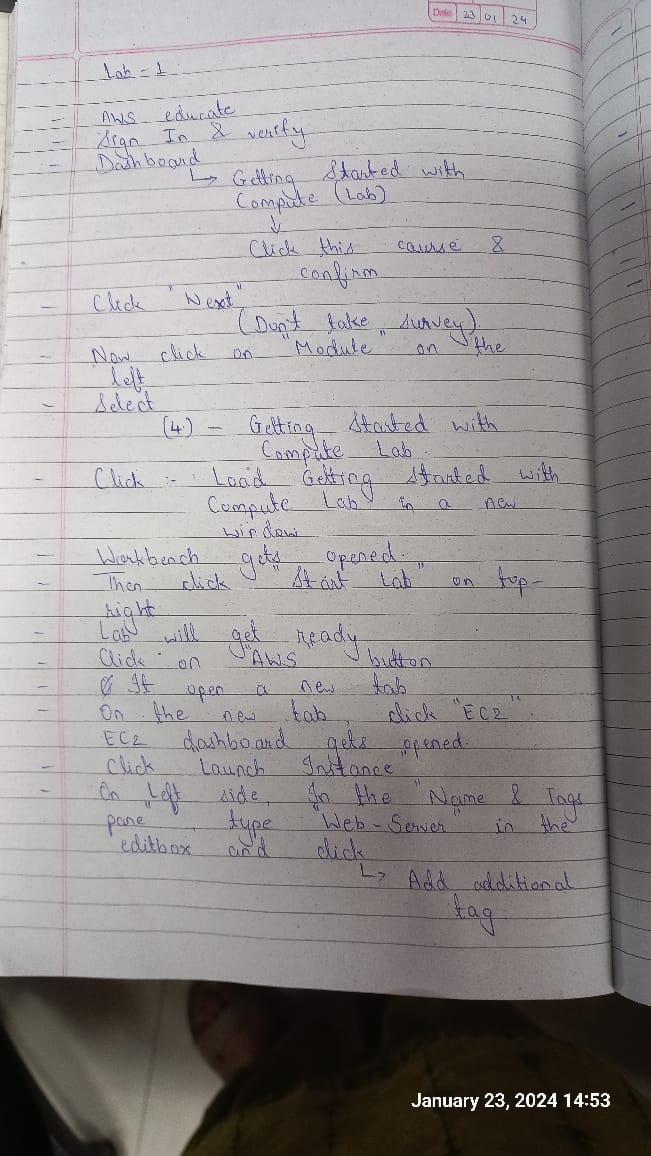 Date 23 01 24
Lab - 1
- AWS educate
- Sign In & verify
- Dashboard
↳ Getting Started with
Compute (Lab)
↓
Click this course &
confirm
- Click "Next"
(Don't take survey).
- Now click on "Module" on the
left
- Select
(4) - Getting Started with
Compute Lab.
- Click :- Load Getting Started with
Compute Lab in a new
window
- Workbench gets opened.
- Then click "Start Lab" on top-
right
- Lab will get ready
- Click on "AWS" button
- It open a new tab
- On the new tab, click "EC2".
EC2 dashboard gets opened.
- Click Launch Instance"
- On Left side, In the "Name & Tags
pane", type "Web-Server" in the
editbox and click
↳ Add additional
tag
January 23, 2024 14:53